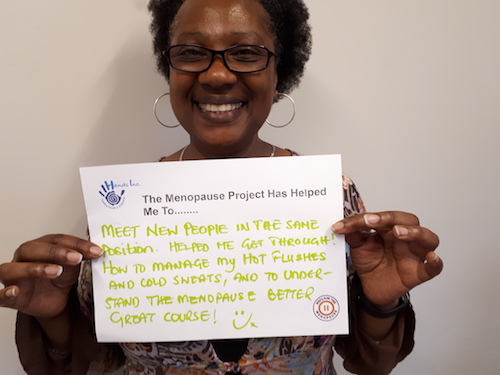 Hands Inc
The Menopause Project Has Helped
Me To........
MEET NEW PEOPLE IN THE SAME
POSITION. HELPED ME GET THROUGH!
HOW TO MANAGE MY HOT FLUSHES
AND COLD SWEATS, AND TO UNDER-
STAND THE MENOPAUSE BETTER
GREAT COURSE!